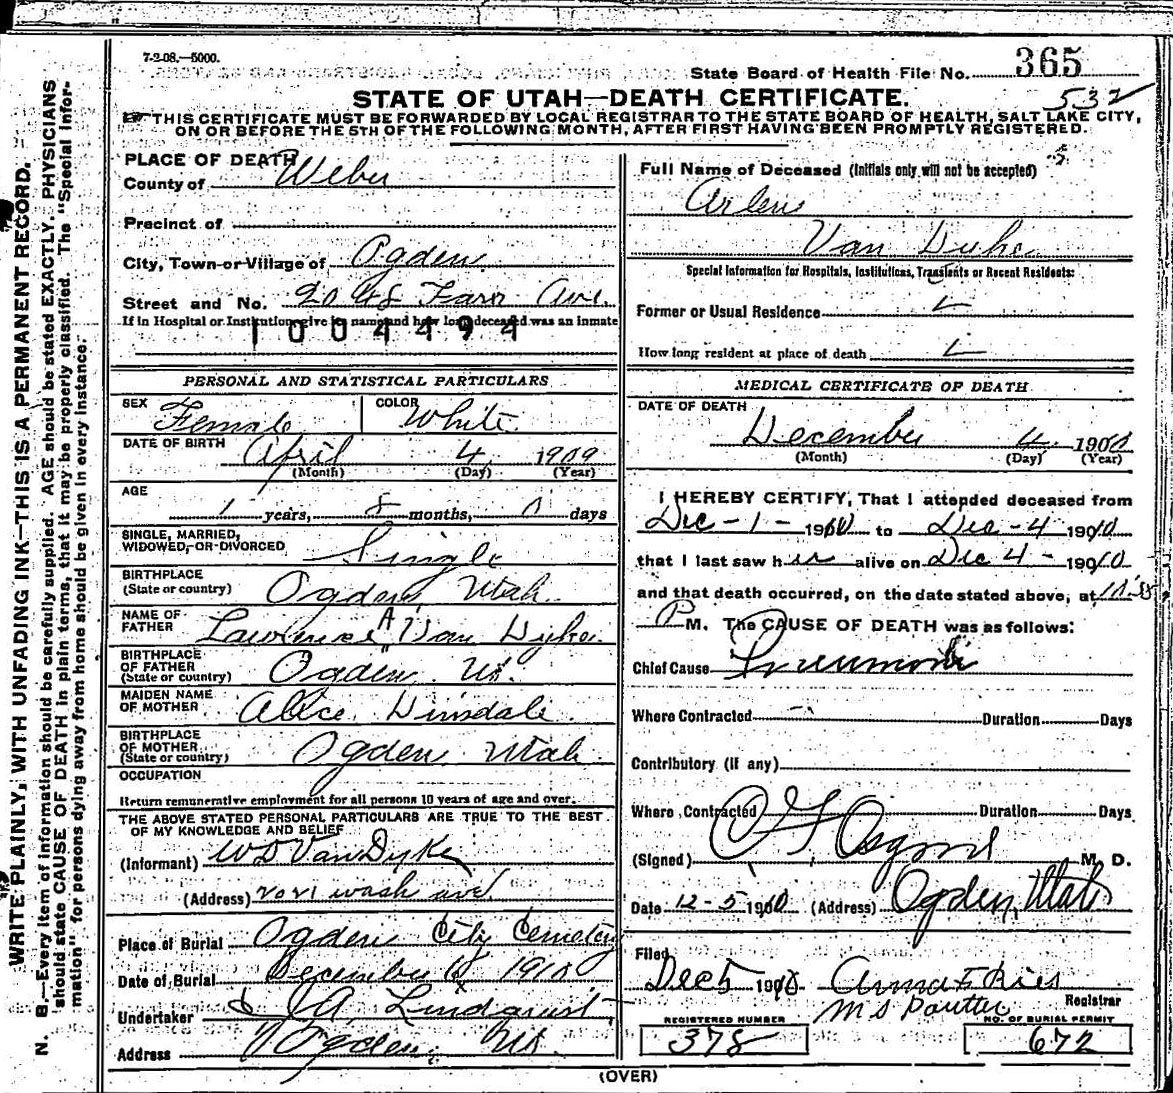 7-2-08.—5000.
State Board of Health File No. 365
532
STATE OF UTAH—DEATH CERTIFICATE.
THIS CERTIFICATE MUST BE FORWARDED BY LOCAL REGISTRAR TO THE STATE BOARD OF HEALTH, SALT LAKE CITY,
ON OR BEFORE THE 5TH OF THE FOLLOWING MONTH, AFTER FIRST HAVING BEEN PROMPTLY REGISTERED.
WRITE PLAINLY, WITH UNFADING INK—THIS IS A PERMANENT RECORD.
N. B.—Every item of information should be carefully supplied. AGE should be stated EXACTLY. PHYSICIANS
should state CAUSE OF DEATH in plain terms, that it may be properly classified. The "Special Infor-
mation" for persons dying away from home should be given in every instance.
PLACE OF DEATH
County of Weber
Precinct of
City, Town or Village of Ogden
Street and No. 2048 Farr Ave.
If in Hospital or Institution give its name and how long deceased was an inmate
1004494
PERSONAL AND STATISTICAL PARTICULARS
SEX Female COLOR White
DATE OF BIRTH April 4 1909
(Month) (Day) (Year)
AGE
1 years, 8 months, 0 days
SINGLE, MARRIED,
WIDOWED, OR DIVORCED Single
BIRTHPLACE
(State or country) Ogden Utah
NAME OF
FATHER Lawrence A Van Dyke
BIRTHPLACE
OF FATHER
(State or country) Ogden Ut.
MAIDEN NAME
OF MOTHER Alice Dinsdale
BIRTHPLACE
OF MOTHER
(State or country) Ogden Utah
OCCUPATION
Return remunerative employment for all persons 10 years of age and over.
THE ABOVE STATED PERSONAL PARTICULARS ARE TRUE TO THE BEST
OF MY KNOWLEDGE AND BELIEF
(Informant) W D Van Dyke
(Address) wash ave
Place of Burial Ogden City Cemetery
Date of Burial December 1910
Undertaker J A Lindquist
Address Ogden Ut
Full Name of Deceased (Initials only will not be accepted)
Arlen
Van Dyke
Special Information for Hospitals, Institutions, Transients or Recent Residents:
Former or Usual Residence
How long resident at place of death
MEDICAL CERTIFICATE OF DEATH
DATE OF DEATH
December 4 1910
(Month) (Day) (Year)
I HEREBY CERTIFY, That I attended deceased from
Dec - 1 - 1910 to Dec - 4 1910
that I last saw her alive on Dec 4 - 1910
and that death occurred, on the date stated above, at
P M. The CAUSE OF DEATH was as follows:
Chief Cause Pneumonia
Where Contracted Duration Days
Contributory (if any)
Where Contracted Duration Days
(Signed) Osgood M. D.
Date 12-5-1910 (Address) Ogden, Utah
Filed
Dec 5 1910 Anna F Ries
Registrar
REGISTERED NUMBER
378
NO. OF BURIAL PERMIT
672
(OVER)